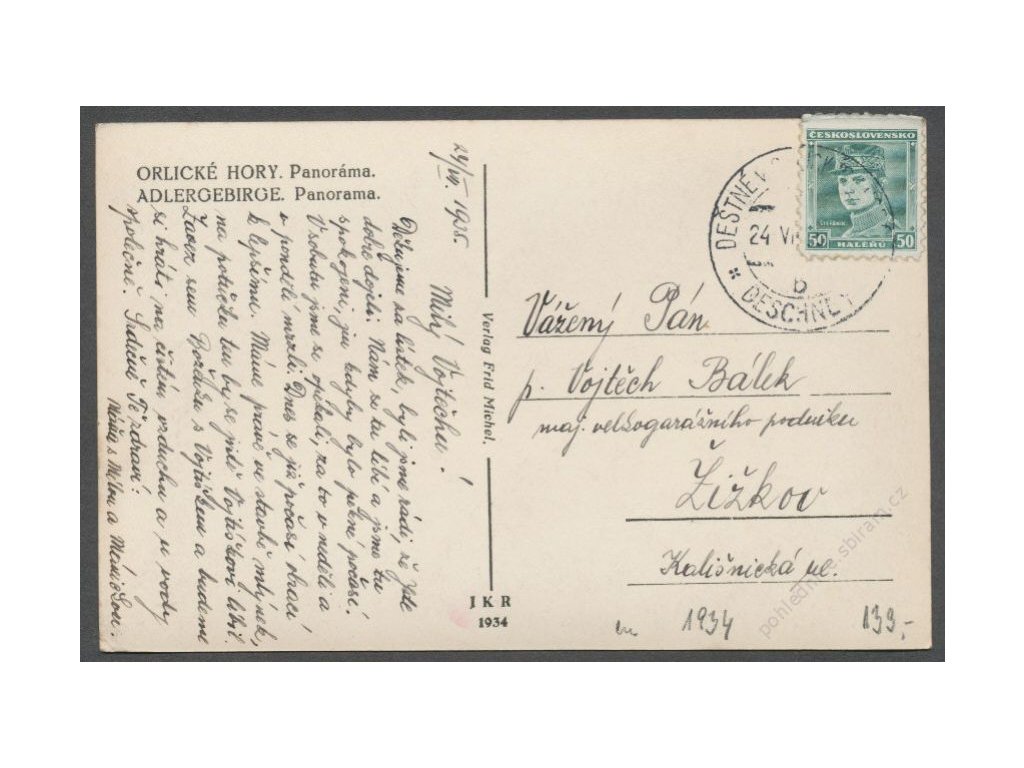 ORLICKÉ HORY. Panoráma.
ADLERGEBIRGE. Panorama.
24/VII. 1935.
Milý Vojtěchu!
Děkujeme za lístek, byli jsme rádi že jste
dobře dojeli. Nám se tu líbí a jsme tu
spokojeni, jen kdyby bylo pěkné počasí.
V sobotu jsme se opékali, za to v neděli a
v pondělí mrzli. Dnes se již počasí obrací
k lepšímu. Máme právě ve stavbě mlýnek,
na potůčku tu by se jistě Vojtíškovi líbil.
sem s Vojtíškem a budeme
si hráti na čistém vzduchu a u vody
společně. Srdečně Tě zdraví:
a
Verlag Frid Michel.
JKR
1934
ČESKOSLOVENSKO
ŠTEFÁNIK
50 HALÉŘŮ 50
DEŠTNÉ V
24 VI
b
DESCHNEY
Vážený Pán
p. Vojtěch Bálek
maj. velkogarážního podniku
Žižkov
Kališnická ul.
1934
139,-
pohlednice.sbiram.cz